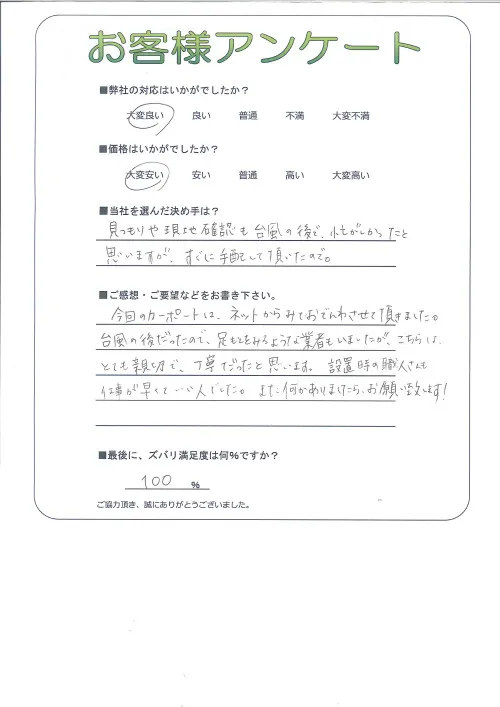 お客様アンケート
■弊社の対応はいかがでしたか？
大変良い 良い 普通 不満 大変不満
■価格はいかがでしたか？
大変安い 安い 普通 高い 大変高い
■当社を選んだ決め手は？
見つもりや現地確認も台風の後で、忙がしかったと
思いますが、すぐに手配して頂いたので。
■ご感想・ご要望などをお書き下さい。
今回のカーポートは、ネットからみておでんわさせて頂きました。
台風の後だったので、足もとをみるような業者もいましたが、こちらは、
とても親切で、丁寧だったと思います。設置時の職人さんも
仕事が早くていい人でした。また何かありましたら、お願い致します！
■最後に、ズバリ満足度は何%ですか？
100 %
ご協力頂き、誠にありがとうございました。